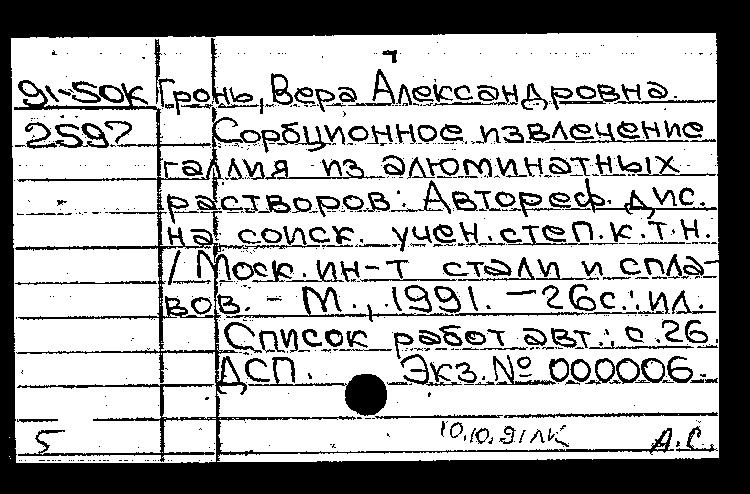 91-50К Гронь, Вера Александровна.
2597 Сорбционное извлечение
галлия из алюминатных
растворов: Автореф. дис.
на соиск. учен. степ. к.т.н.
/ Моск. ин-т стали и спла-
вов. - М., 1991. - 26с.: ил.
Список работ авт.: с.26.
ДСП. Экз. № 000006.
5 10.10.91 ЛК А.С.